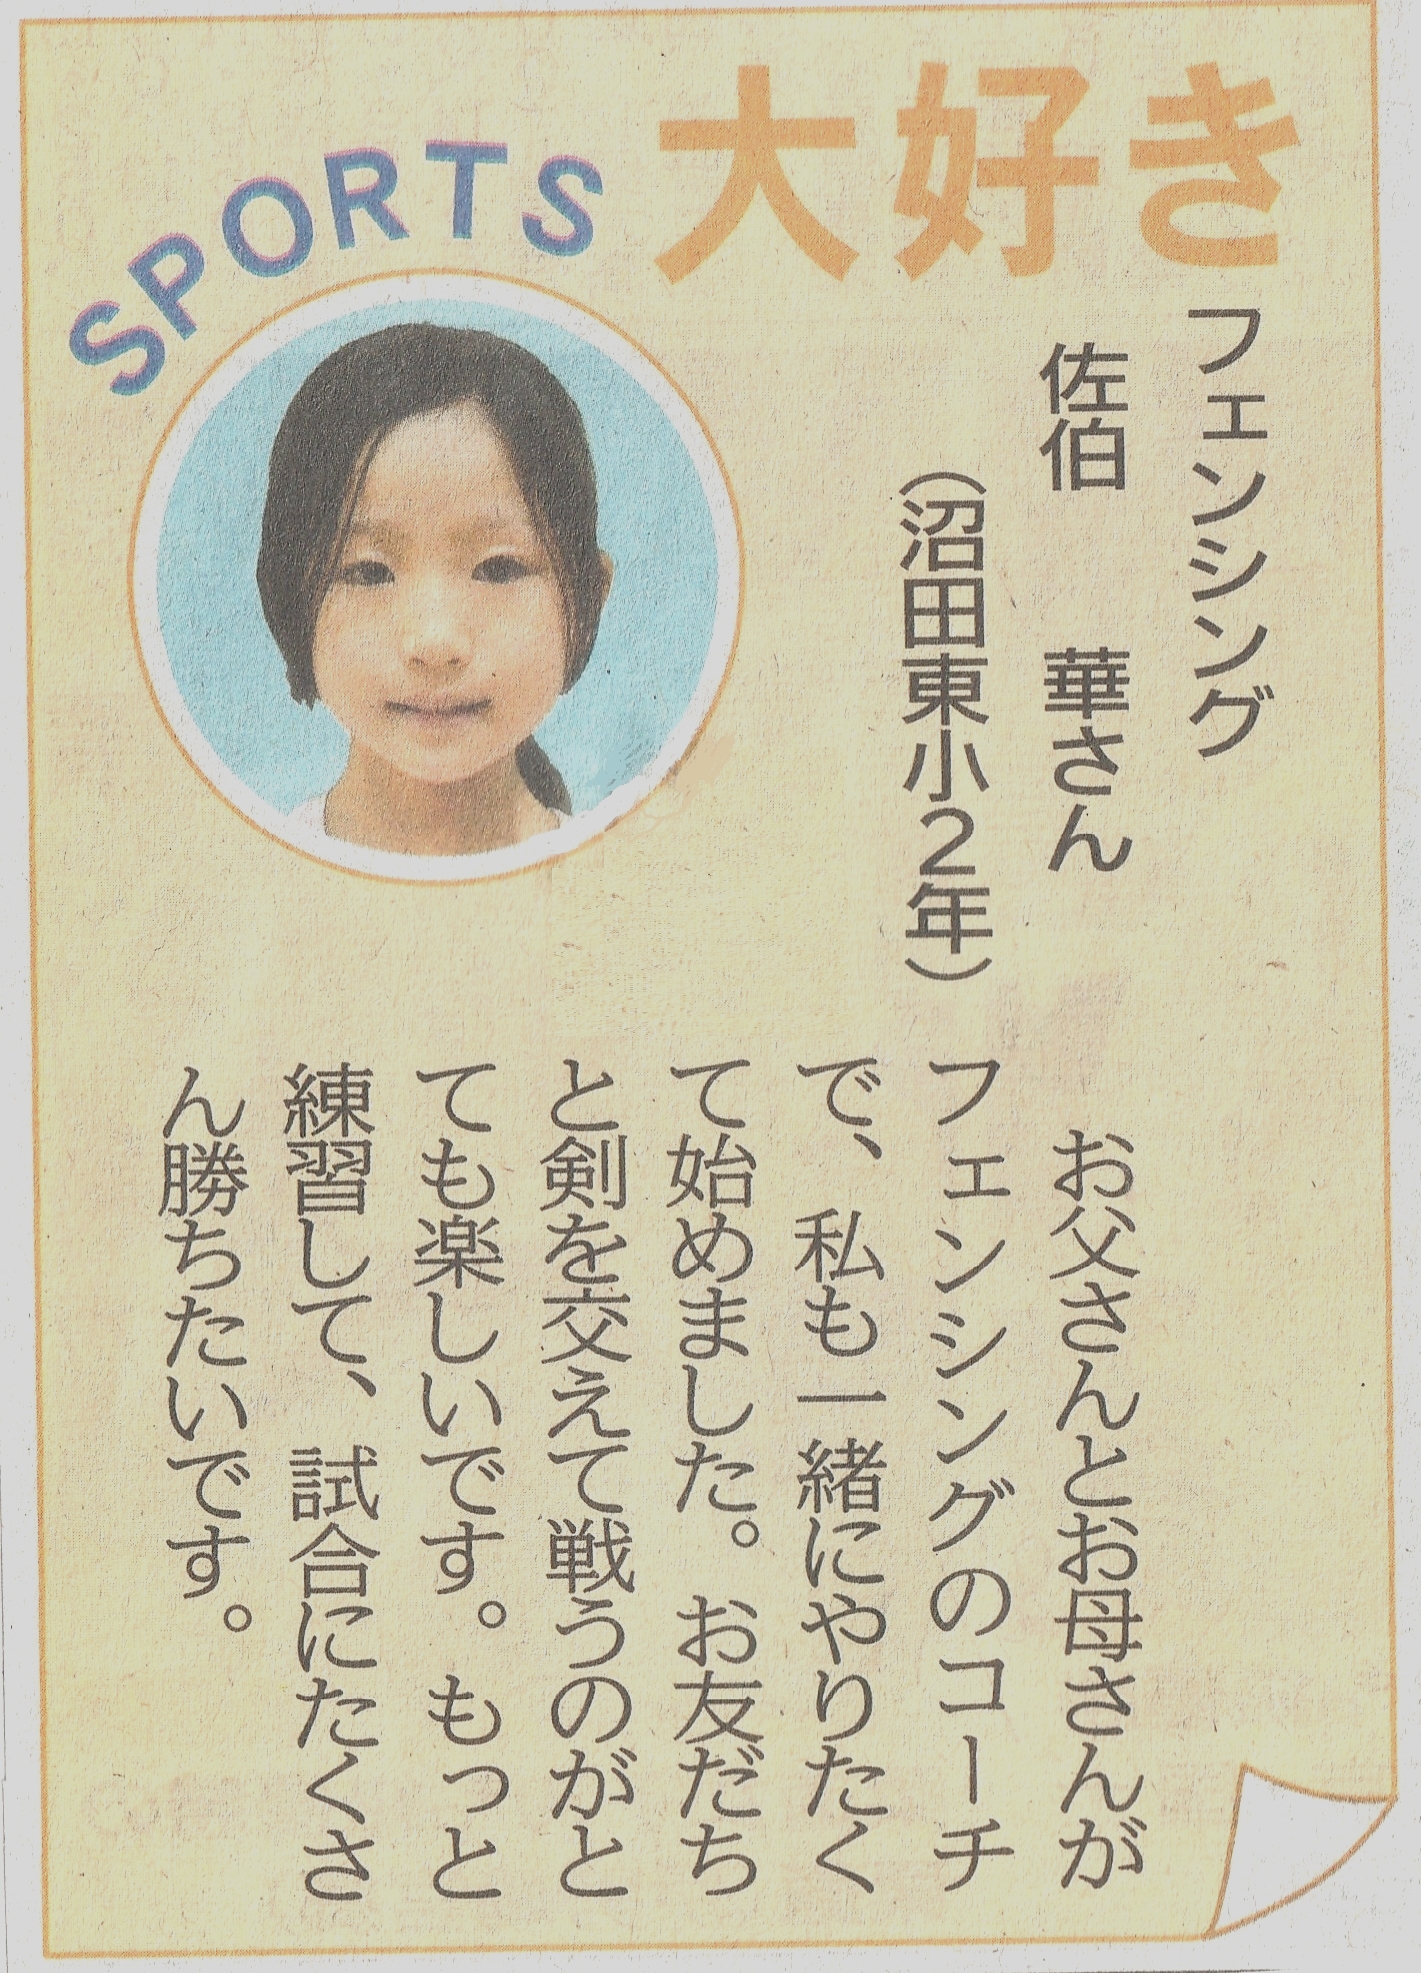 SPORTS大好き
フェンシング
佐伯　華さん
（沼田東小２年）
お父さんとお母さんが
フェンシングのコーチ
で、私も一緒にやりたく
て始めました。お友だち
と剣を交えて戦うのがと
ても楽しいです。もっと
練習して、試合にたくさ
ん勝ちたいです。